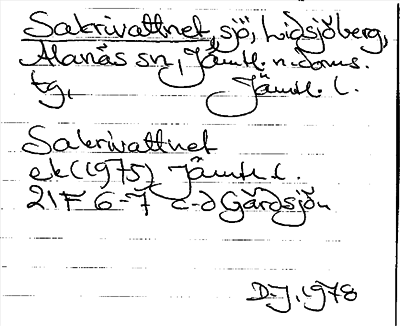 Sakrivattnet, sjö, Lidsjöberg,
Alanäs sn, Jämtl. n. doms.
tg, Jämtl. l.
Sakrivattnet
ek (1975) Jämtl. l.
21F 6-7 c-d Gårdsjön
D.J. 1978